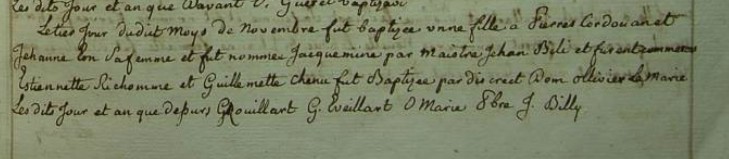 Les dits Jour et an que davant G. Guerel baptizavi
Le ties Jour dudit Moys de Novembre fut baptizee vnne fille a Pierres Cordouan et
Jehanne Eon Sa femme et fut nommee Jacquemine par Maistre Jehan Bili et furent commeres
Estiennette Richomme et Guillemette Chenu fut Baptizee par discreet Dom ollivier La Marie
Les dits Jour et an que depurs Grouillart G. Eveillart O Marie Pbre J. Billy